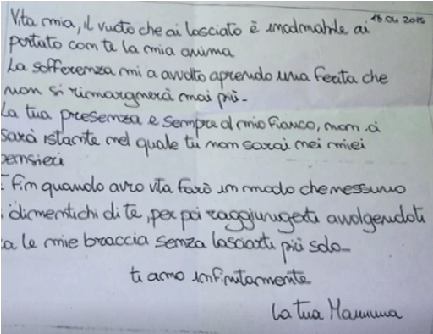 18 01 2016
Vita mia, il vuoto che ai lasciato è incolmabile ai
portato con te la mia anima
La sofferenza mi a avvolto aprendo una ferita che
non si rimarginerà mai più-
La tua presenza è sempre al mio fianco, non ci
sarà istante nel quale tu non sarai nei miei
pensieri
Fin quando avro vita farò in modo che nessuno
dimentichi di te, per poi raggiungerti avvolgendoti
a le mie braccia senza lasciarti più solo-
ti amo infinitamente
La tua Mamma